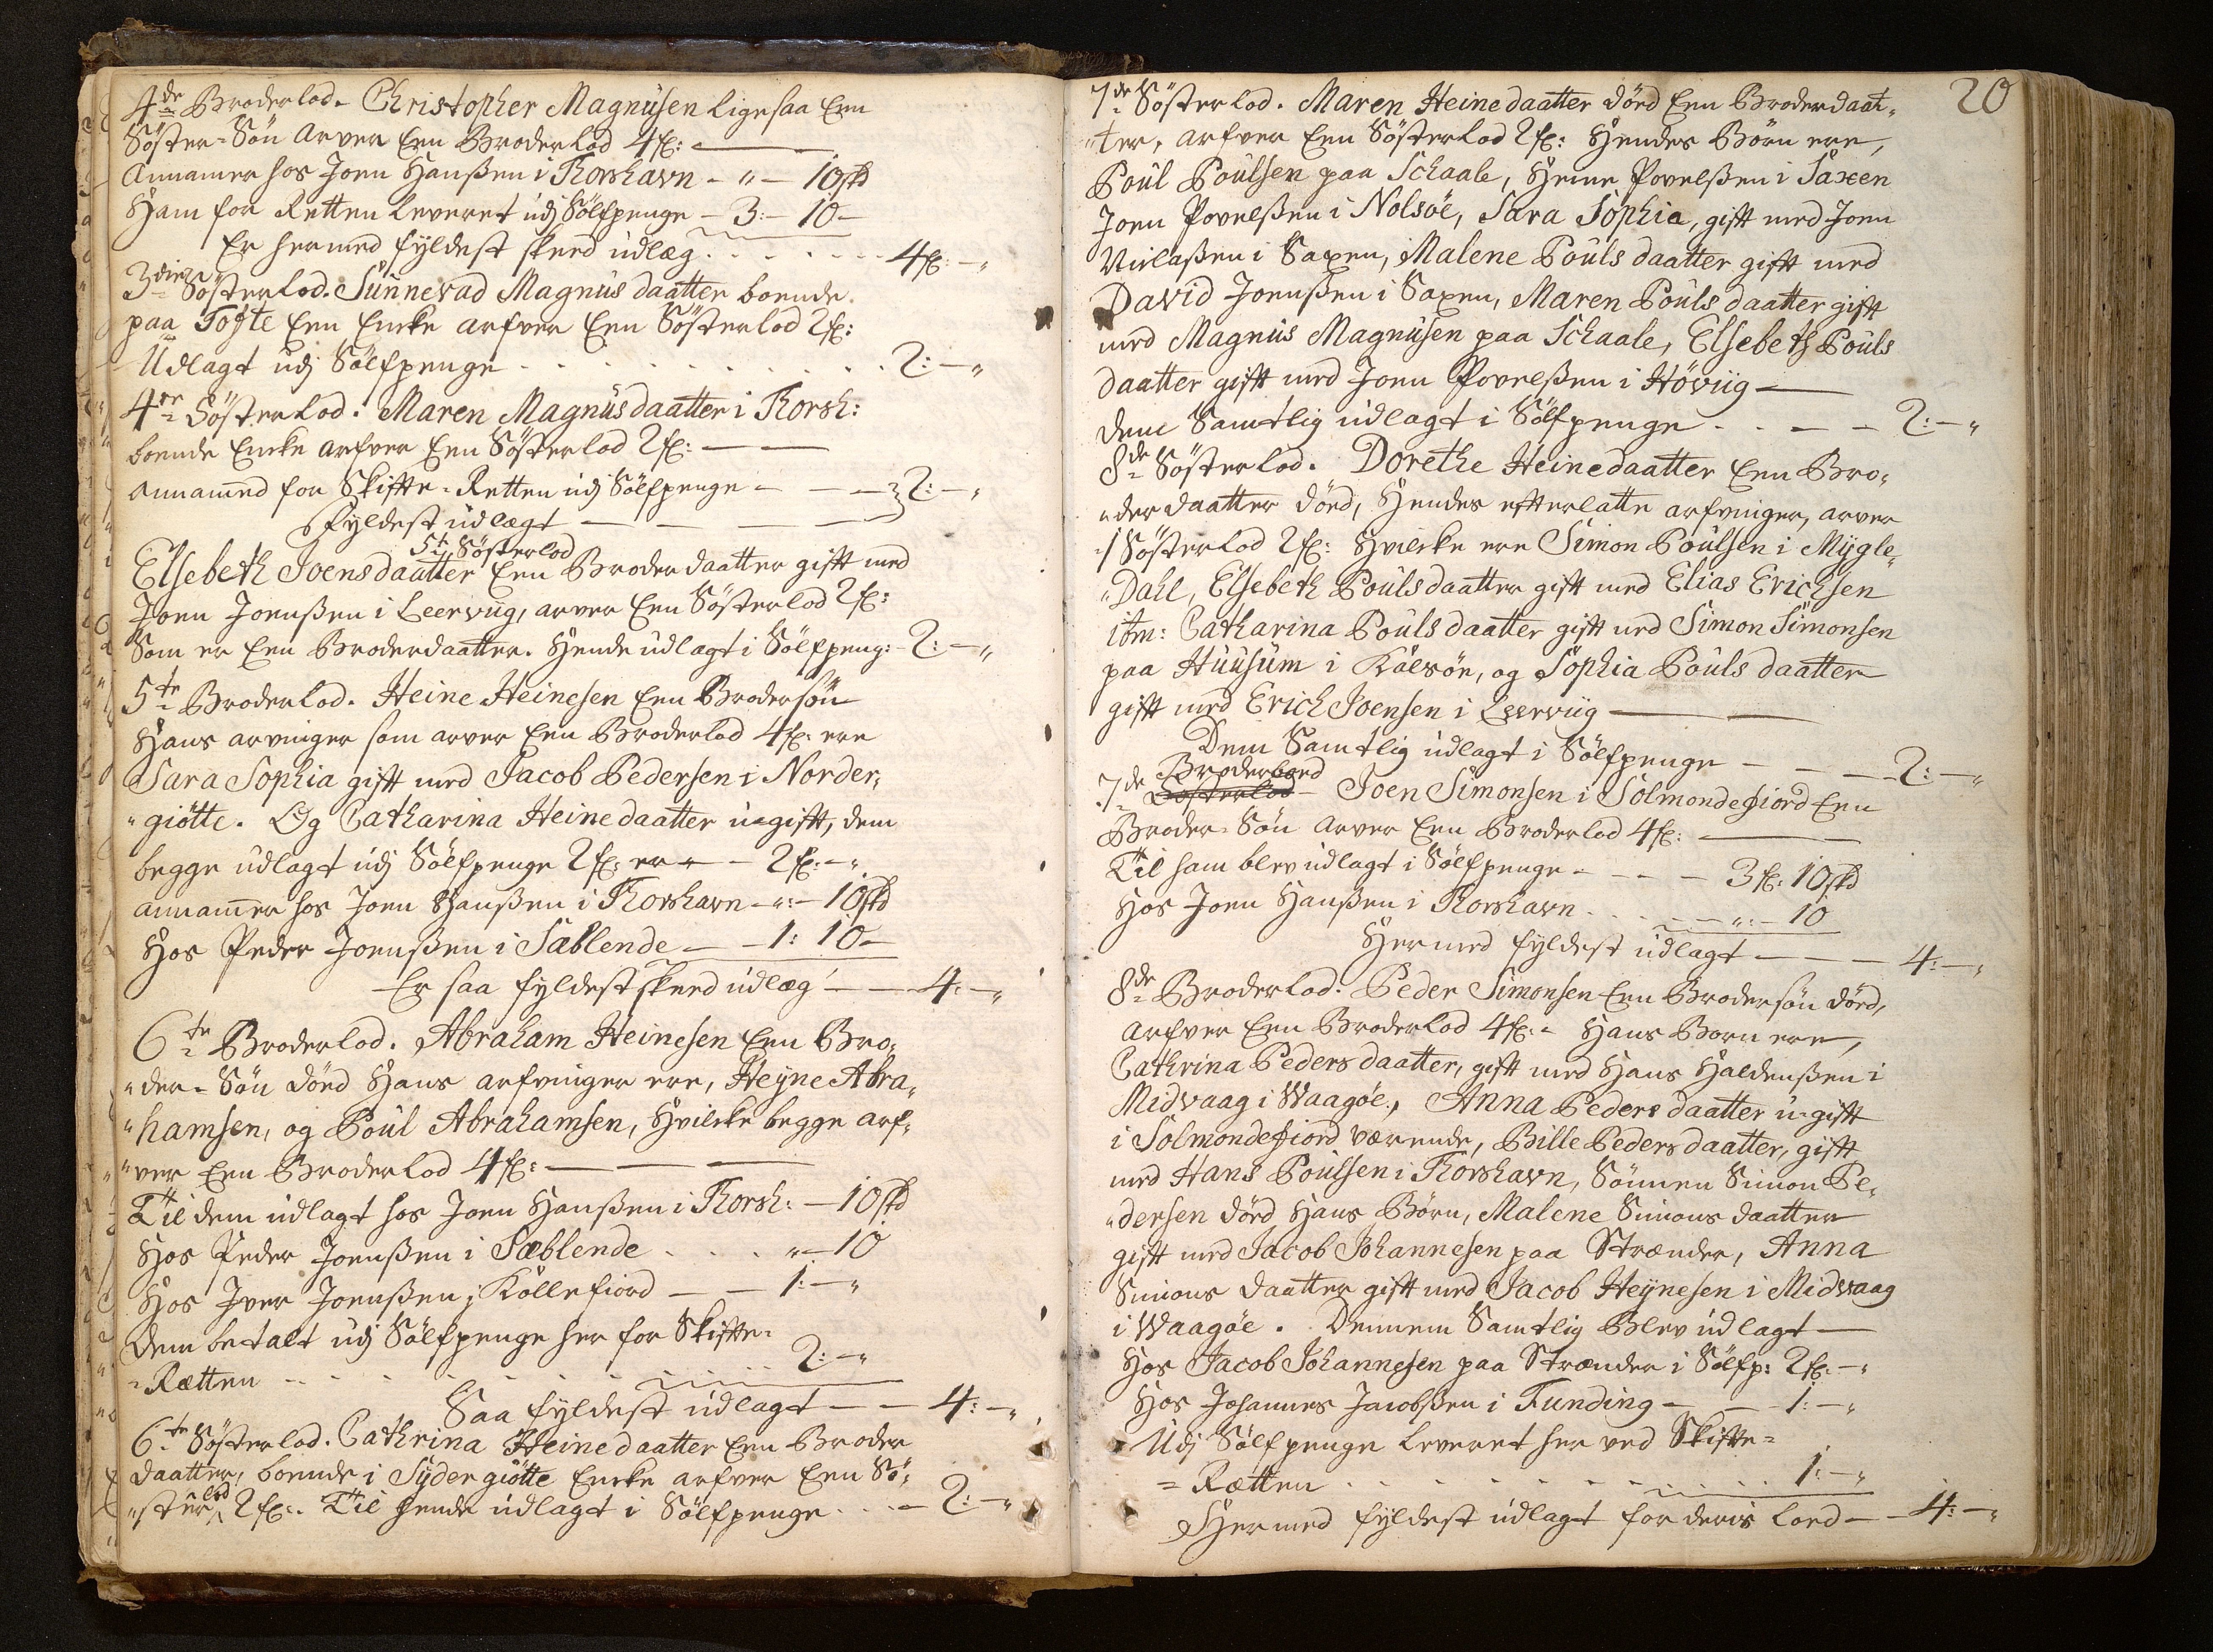 4de Broderlod. Christopher Magnusen ligesaa Een
Söster-Sön arver Een Broderlod 4 fl:
Annamer hos Joen Hanßen i Thorshavn - " - 10 skd
Ham for Retten leveret udj Sölfpenge - 3:- 10 -
Er hermed fyldest skeed udlæg . . . . . . . 4 fl: - "
3die Sösterlod. Sunnevad Magnus daatter boende
paa Tofte Een Encke arfver Een Sösterlod 2 fl:
Udlagt udj Sölfpenge . . . . . . . . . . 2: - "
4de Sösterlod. Maren Magnus daatter i Thorsh:
boende Encke arfver Een Sösterlod 2 fl:
annamed for Skifte-Retten udj Sölfpenge - - - 2: - "
Fyldest udlagt
5te Sösterlod
Elsebeth Joensdaatter Een Broder daatter gift med
Joen Joenßen i Leervüg, arver Een Sösterlod 2 fl:
Som er Een Broderdaatter. Hende udlagt i Sölfpeng: - 2: - "
5te Broderlod. Heine Heinesen Een Brodersön
Hans arvinger som arver Een Broderlod 4 fl: ere
Sara Sophia gift med Jacob Pedersen i Norder,
"giötte. Og Catharina Heinedaatter ugift, dem
begge udlagt udj Sölfpenge 2 fl: er - - 2 fl: - "
annamer hos Joen Hanßen i Thorshavn - ": - 10 skd
Hos Peder Joenßen i Sæblende - - 1: 10 -
Er saa fyldest skeed udlæg - - 4: - "
6te Broderlod. Abraham Heinesen Een Bro,
"der-Sön död Hans arfvinger ere, Heyne Abra,
"hamsen, og Poul Abrahamsen, Hvilcke begge arf,
"ver Een Broderlod 4 fl:
Til dem udlagt hos Joen Hanßen i Thorsh: - 10 skd
Hos Peder Joenßen i Sæblende . . . . " - 10
Hos Iver Joenßen i Kollefiord - - 1: - "
Dem betalt udj Sölfpenge her for Skifte-
-Rætten - . . . . . . 2: - "
Saa fyldest udlagt - - 4: - "
6te Sösterlod. Cathrina Heinedaatter Een Broder
daatter, boende i Sydergiötte Encke arfver Een Sö,
"sterlod 2 fl:. Til hende udlagt i Sölfpenge . . . - 2: - "
20
7de Sösterlod. Maren Heinedaatter död Een Broderdaat,
"ter, arfver Een Sösterlod 2 fl: Hendes Börn ere,
Poul Poulsen paa Schaale, Heine Povelßen i Saxen
Joen Povelßen i Nolsöe, Sara Sophia, gift med Joen
i Saxen, Malene Pouls daatter gift med
David Joenßen i Saxen, Maren Pouls daatter gift
med Magnus Magnusen paa Schaale, Elsebeth Pouls
daatter gift med Joen Povelßen i Hövüg
Dem Samtlig udlagt i Sölfpenge . . - - 2: - "
8de Sösterlod. Dorethe Heinedaatter Een Bro,
"der daatter död, Hendes efterlatte arfvinger, arver
1 Sösterlod 2 fl: Hvilcke ere Simon Poulsen i Mygle,
"Dahl, Elsebeth Pouls daatter gift med Elias Erichsen
itm: Catharina Pouls daatter gift med Simon Simonsen
paa Huusum i Kalsöe, og Sophia Pouls daatter
gift med Erich Joensen i Leervüg
Dem Samtlig udlagt i Sölfpenge - - - 2: - "
Broderloed
7de Sosterlod - Joen Simonsen i Solmondefiord Een
Broder-Sön arver Een Broderlod 4 fl:
Til ham blev udlagt i Sölfpenge - - - - 3 fl: 10 skd
Hos Joen Hanßen i Thorshavn . . . . - ": - 10
Hermed fyldest udlagt - - - 4: - "
8de Broderlod. Peder Simonsen Een Brodersön död,
arfver Een Broderlod 4 fl: - Hans Born ere,
Cathrina Peders daatter, gift med Hans Haldenßen i
Midvaag i Waagöe, Anna Peders daatter ugift
i Solmondefiord værende, Bille Peders daatter, gift
med Hans Poulsen i Thorshavn, Sönnen Simon Pe,
"dersen död Hans Börn, Malene Simons daatter
gift med Jacob Johannesen paa Strænder, Anna
Simons daatter gift med Jacob Heynesen i Midvaag
i Waagöe. Dennem Samtlig Blev udlagt
Hos Jacob Johannesen paa Strænder i Sölfp: 2 fl: - "
Hos Johannes Jacobßen i Funding - - 1: - "
Udj Sölfpenge leveret her ved Skifte-
-Rætten . . . . . . . . 1: - "
Hermed fyldest udlagt for deris loed - - 4: - "